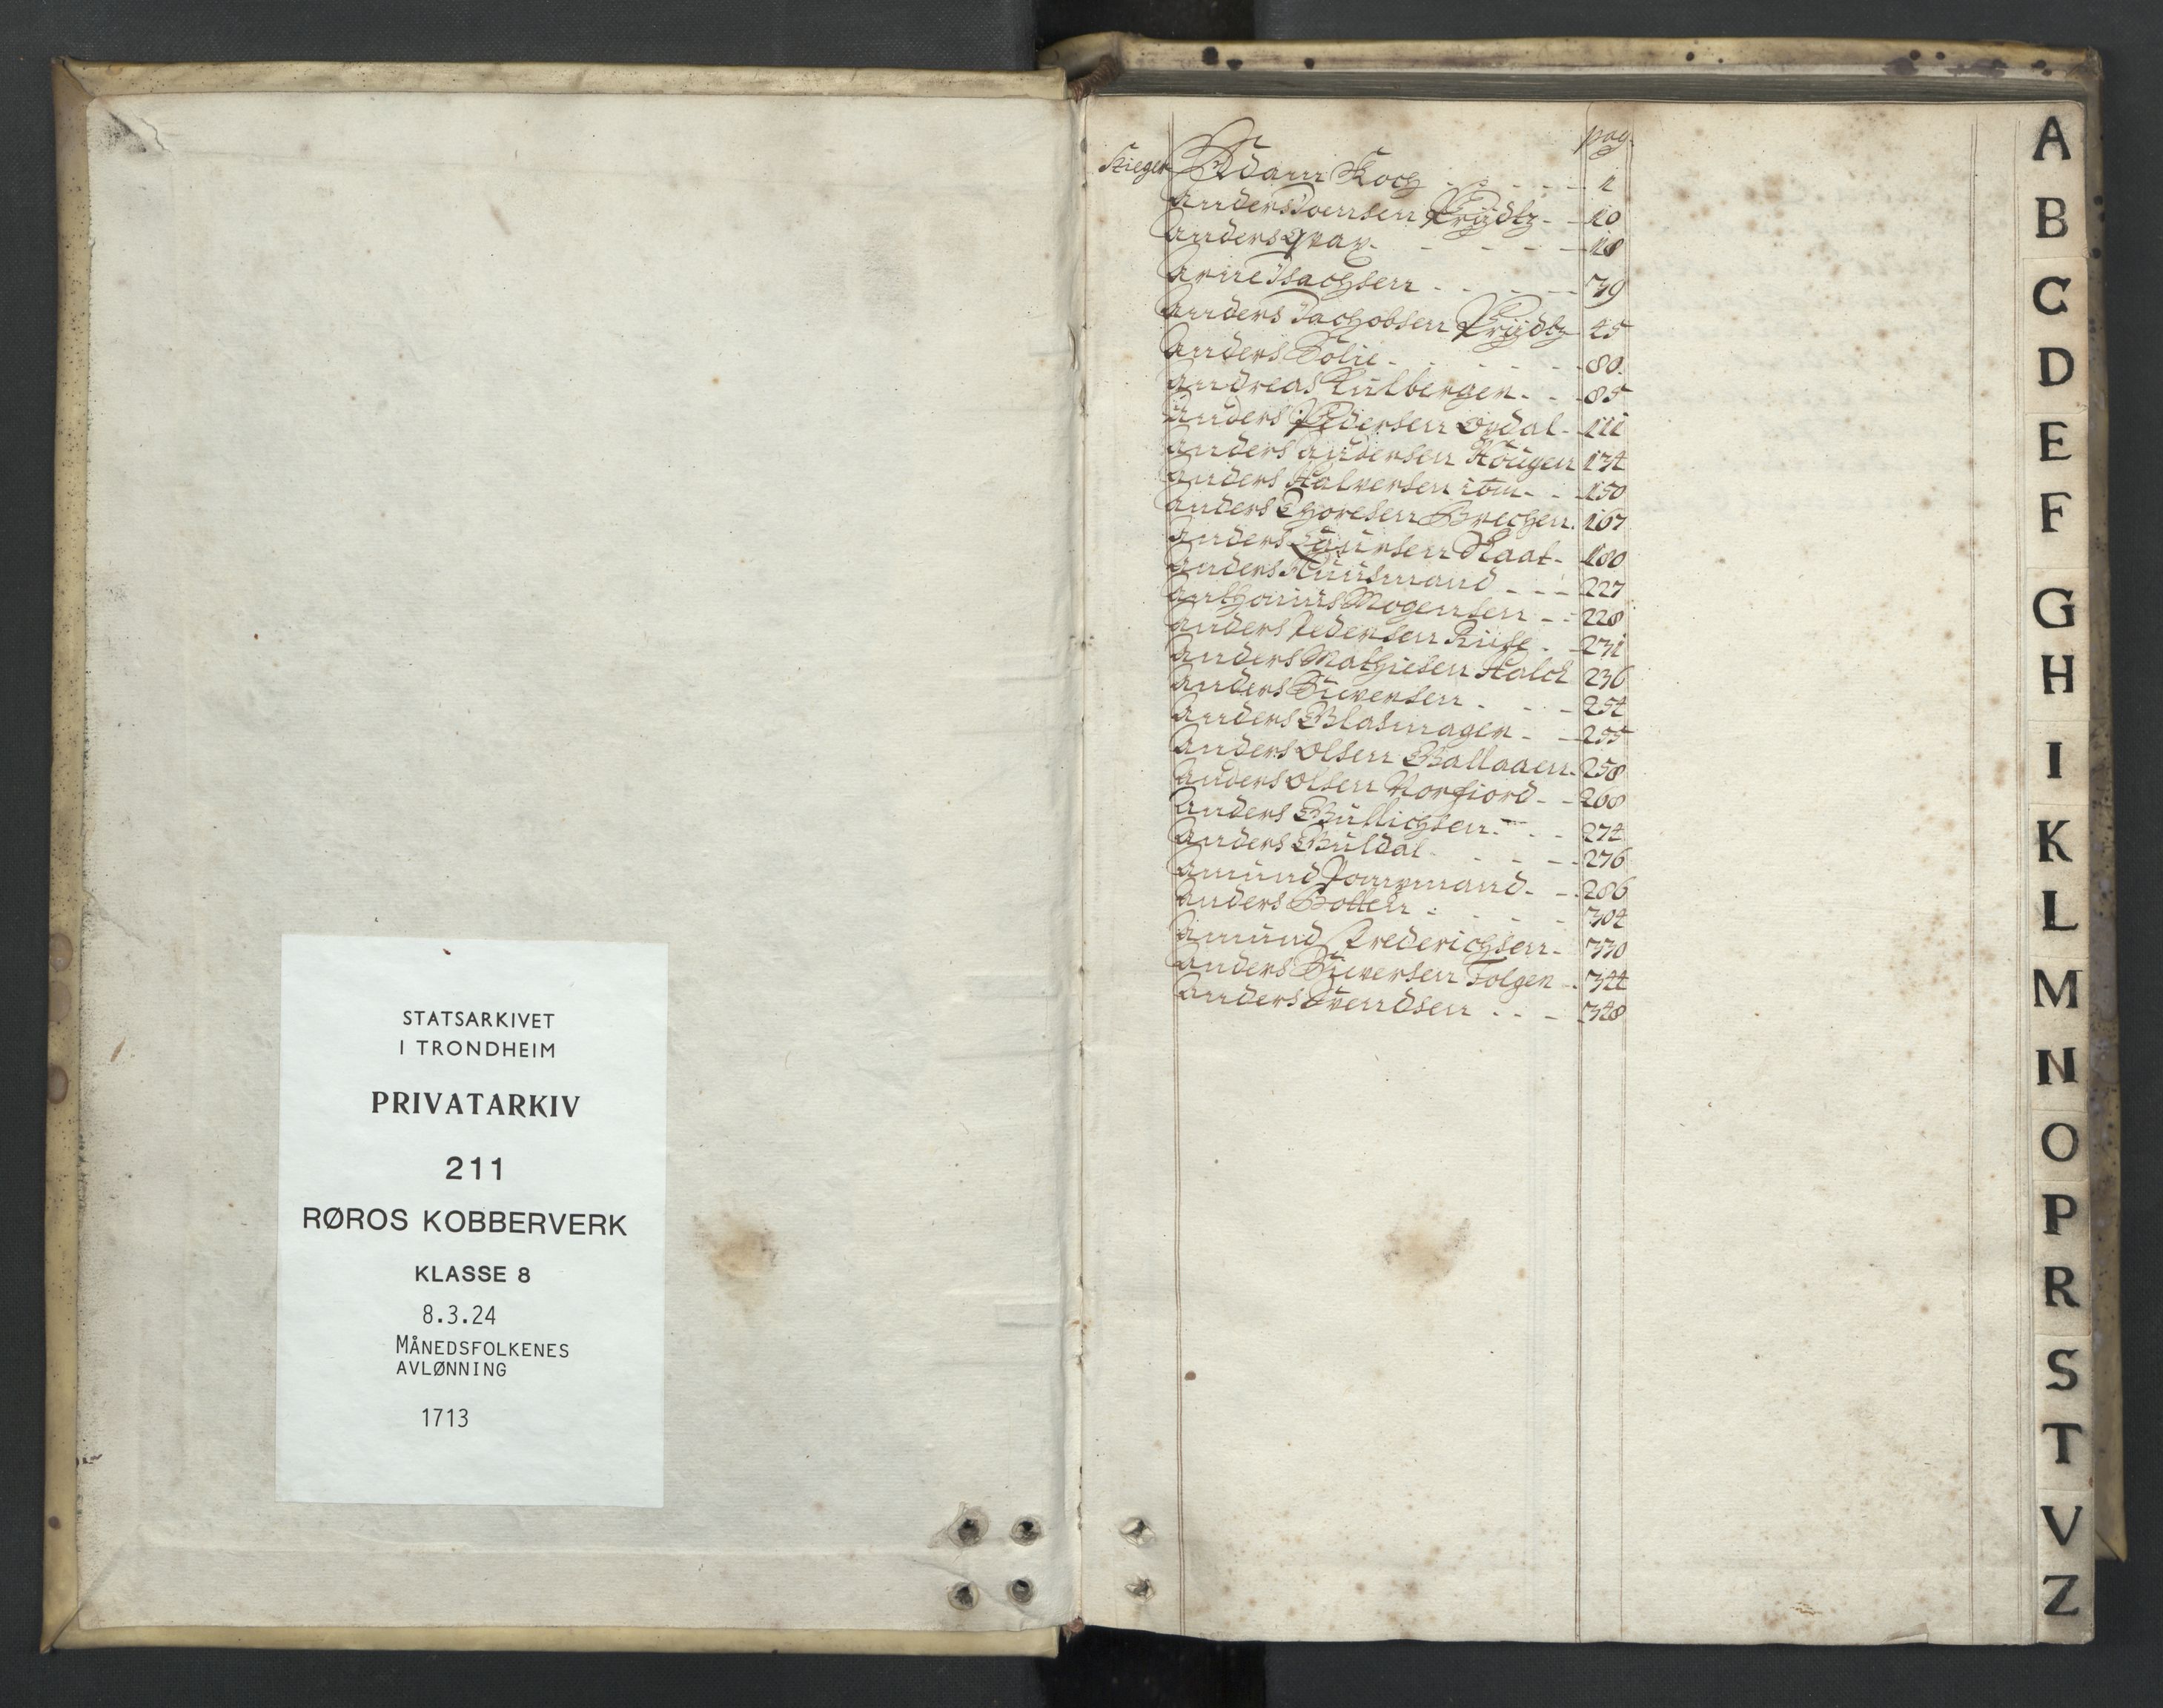 STATSARKIVET
I TRONDHEIM
PRIVATARKIV
211
RØROS KOBBERVERK
KLASSE 8
8.3.24
MÅNEDSFOLKENES
AVLØNNING
1713
pag.
Stieger Adam Koch - - - - 1
Anders Joensen Prydtz - - 10
Anders Graa - - - - 18
Arne Isachsen - - - - 39
Anders Jachobsen Prydtz 45
Anders Solie - - - - 80
Andreas Kulberger - - 85
Anders Pedersen Opdal - 111
Anders Andersen Hougen 134
Anders Halversen - - 150
Anders Thoresen Brechen 167
Anders Raat - 180
Anders Huusmand - - - 227
Anthonius Mogensen - - 228
Anders Pedersen Riise - 231
Anders Mathiesen Halck 236
Anders Siversen - - - 254
Anders Blasmager - - 255
Anders Olsen Ballaaen - 258
Anders Olsen Norfiord - - 268
Anders Bullichsen - - - 274
Anders Buldal - - - - 276
Amund - - 286
Anders Botten - - - - 304
Amund Frederichsen - 330
Anders Siversen Tolgen - 344
Anders Svendsen - - - 348
A
B
C
D
E
F
G
H
I
K
L
M
N
O
P
R
S
T
V
Z